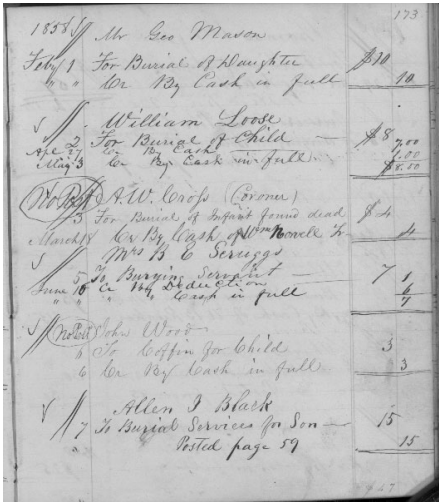 173
1858 Mr Geo Mason
Feby 1 For Burial of Daughter $10
" " Cr By Cash in full 10
William Loose
" 2 For Burial of Child — $8
Apl 27 Cr By Cash 7.00
May 3 Cr By Cash in full 1.00
$8.00
No Post A. W. Cross (Coroner)
" 3 For Burial of Infant found dead $4
March 18 Cr By Cash of Wm Nowell Tr 4
Mrs B E Scruggs
" 5 To Burying Servant — 7
June 10 Cr By Deduction 1
" " " " Cash in full 6
7
No Post John Wood
6 To Coffin for Child 3
6 Cr By Cash in full 3
Allen J Black
" 7 To Burial Services for Son — 15
" Posted page 59 15